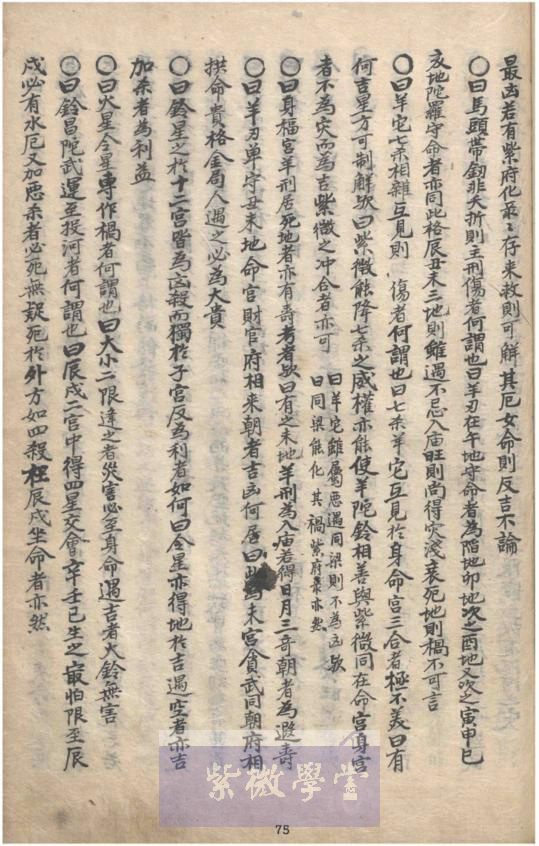 最凶若有紫府化彔〻存来救則可解其厄女命則反吉不論
〇曰馬頭帶劔非夭折則主刑傷者何謂也曰羊刃在午地守命者為陷地卯地次之酉地又次之寅申巳
亥地陀羅守命者亦同此格辰丑未三地則雖遇不忌入庙旺則尚得灾淺衰死地則禍不可言
〇曰羊它七杀相雜互見則 傷者何謂也曰七杀羊它互見扵身命宮三合者極不美曰有
何吉星方可制解欤曰紫微能降七杀之威權亦能使羊陀鈴相善與紫微同在命宮身宮
者不為灾而為吉紫微之冲合者亦可
曰羊它雖屬悪遇同梁則不為凶欤
曰同梁能化其禍紫府彔亦然
〇曰身福宮羊刑居死地者亦有壽考者欤曰有之未地羊刑為入庙若得日月三竒朝者為遐壽
〇曰羊刃单守丑未地命宮財官府相来朝者吉凶何居曰此為未宮貪武同朝府相
拱命貴格金局人遇之必為大貴
〇曰鈴星之扵十二宮皆為凶殺而獨扵子宮反為利者如何曰令星亦得地扵吉遇空者亦吉
加杀者為利益
〇曰火星令星專作禍者何謂也曰大小二限逢之者災害必至身命遇吉者火鈴無害
〇曰鈴昌陀武運至投河者何謂也曰辰戌二宮中得四星交會辛壬己生之㝡怕限至辰
戌必有水厄又加悪杀者必死無疑死扵外方如四殺在辰戌坐命者亦然
紫微學堂
75